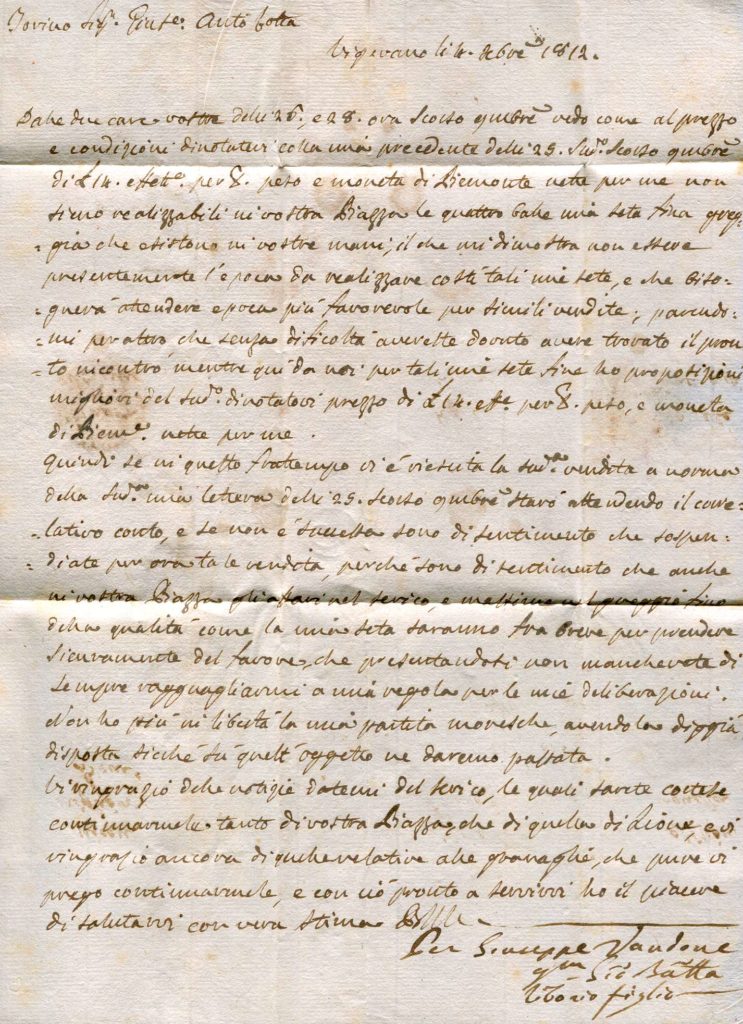 Torino Sig.r Gius.e Ant.o Cotta
Vigevano li 4. Xbre 1812.
Dalle due care vostre delli 26. e 28. ora scorso 9mbre vedo come al prezzo
e condizioni dinotatevi colla mia precedente delli 25. sud.o scorso 9mbre
di £ 14. effet.e per peso e moneta di Piemonte nette per me non
siino realizzabili in vostra Piazza le quattro balle mia seta fina greg-
-gia che esistono in vostre mani; il che mi dimostra non essere
presentemente l'epoca da realizzare costì tali mie sete, e che biso-
-gnerà attendere epoca più favorevole per simili vendite; parendo-
-mi per altro che senza dificoltà avreste dovuto avere trovato il pron-
-to incontro, mentre quì da noi per tali mie sete fine ho proposizioni
migliori del sud.o dinotatovi prezzo di £ 14. eff.e per peso, e moneta
di Piem.e nette per me.
Quindi se in questo frattempo vi è riescita la sud.a vendita a norma
della sud.a mia lettera delli 25. scorso 9mbre starò attendendo il corre-
-lativo conto, e se non è successa sono di sentimento che sospen-
-diate per ora tale vendita, perchè sono di sentimento che anche
in vostra Piazza gli affari nel serico, e massime nel greggio fino
della qualità come la mia seta saranno fra breve per prendere
sicuramente del favore, che presentandosi non mancherete di
sempre ragguagliarmi a mia regola per le mie deliberazioni.
Non ho più in libertà la mia partita moresche, avendola diggià
disposta sicchè sù quell'oggetto ne daremo passata.
Vi ringrazio delle notizie datemi del serico, le quali sarete cortese
continuarmele tanto di vostra Piazza, che di quella di Lione, e vi
ringrazio ancora di quelle relative alle granaglie, che pure vi
prego continuarmele, e con ciò pronto a servirvi ho il piacere
di salutarvi con vera stima
Per Giuseppe Vandone
qm Gio Batta
figlio